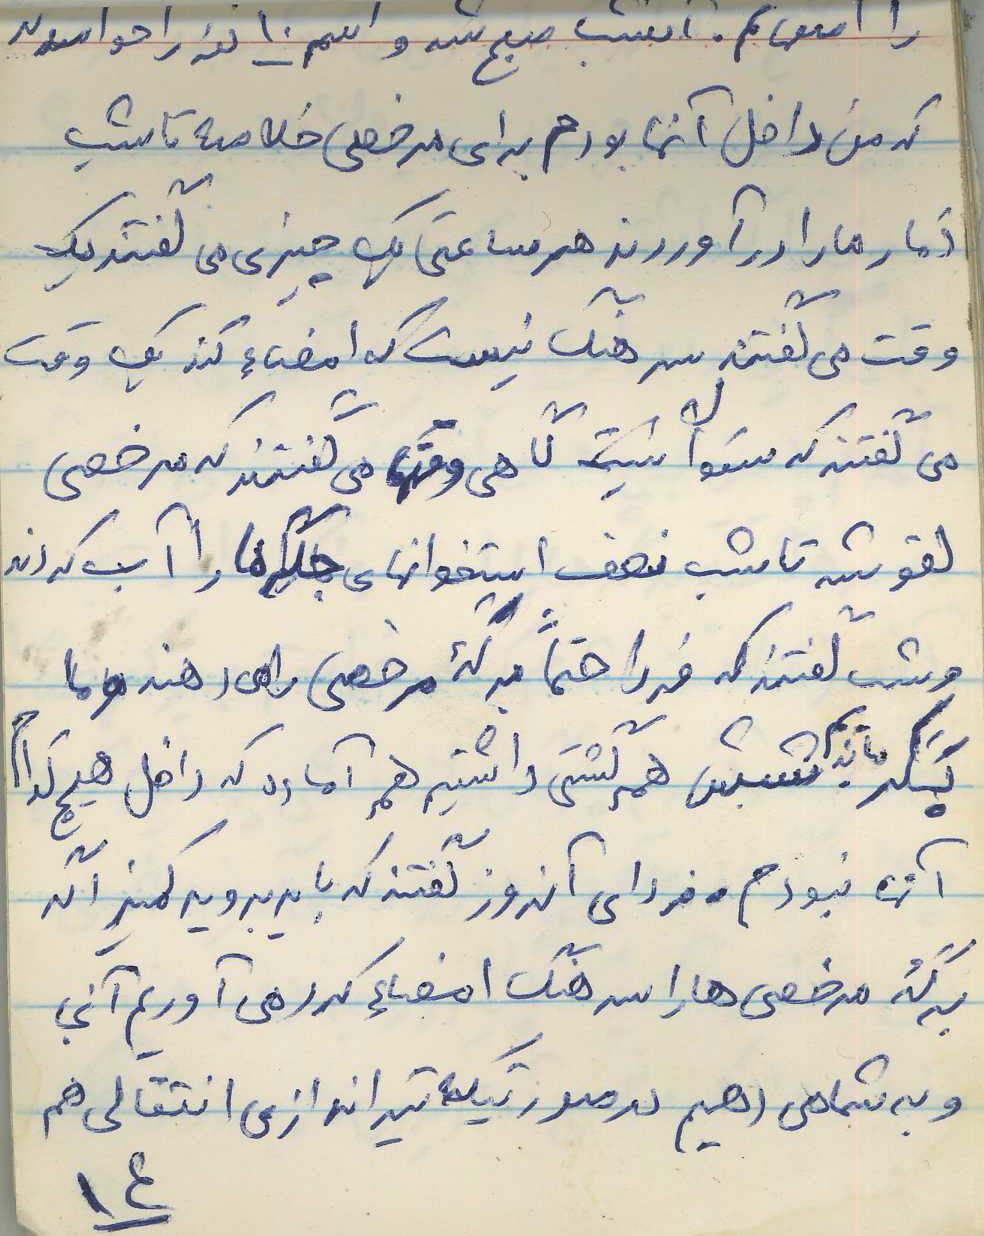 را آنشب صبح شد و اسم ۱۰ نفر را خواندند
که من داخل آنها بودم برای مرخصی خلاصه تا شب
دمار ما را درآوردند هر ساعتی یک چیزی می گفتند یک
وقت می گفتند سرهنگ نیست که امضاء کند یک وقت
می گفتند که گاهی وقتها می گفتند که مرخصی
لغو شد تا شب نصف استخوانهای ما را آب کردند
و شب گفتند که فردا حتماً برگهٔ مرخصی را می دهند و ما
هم گشتی داشتیم هم آماده که داخل هیچ کدام
آنها نبودم . فردای آنروز گفتند که باید بروید کمین اگر
برگهٔ مرخصی ها را سرهنگ امضاء کرد می آوریم آنجا
و به شما می دهیم در صورتیکه تیراندازی انتقالی هم
۱۴